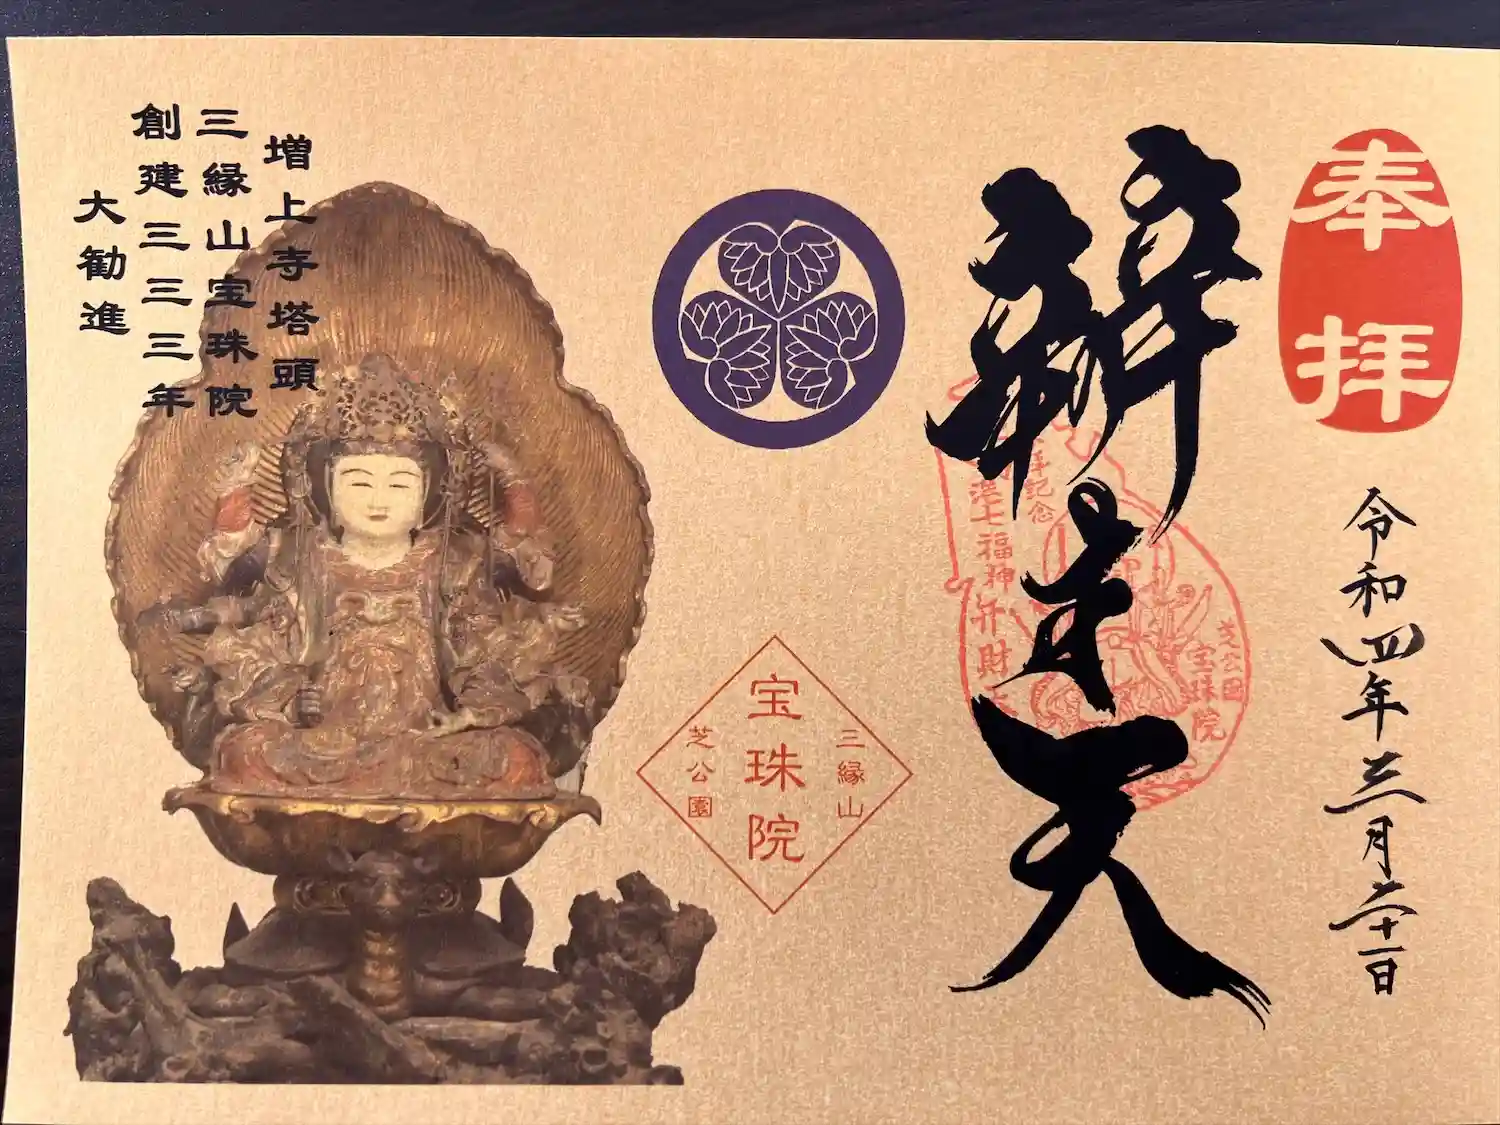 奉拝
令和四年三月二十一日
辨才天
港七福神弁財
芝公園
宝珠院
三縁山
宝珠院
芝公園
増上寺塔頭
三縁山宝珠院
創建三三三年
大勧進